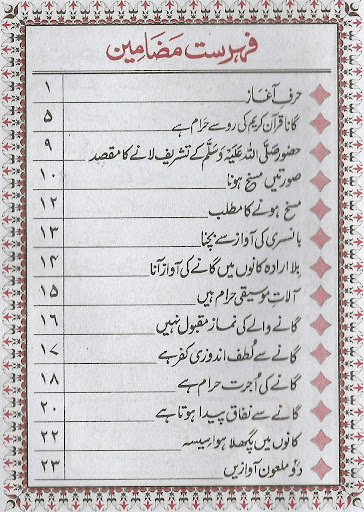 فہرست مَضامین
حرفِ آغاز ۱
گانا قرآن کریم کی رو سے حَرام ہے ۵
حضور صَلَّی اللہُ عَلَیْہِ وَسَلَّم کے تشریف لانے کا مقصد ۹
صورتیں مسخ ہونا ۱۰
مسخ ہونے کا مطلب ۱۲
بانسری کی آواز سے بچنا ۱۳
بلا ارادہ کانوں میں گانے کی آواز آنا ۱۴
آلاتِ موسیقی حرام ہیں ۱۵
گانے والے کی نماز مقبول نہیں ۱۶
گانے سے لُطف اندوزی کفر ہے ۱۷
گانے کی اُجرت حرام ہے ۱۸
گانے سے نفاق پیدا ہوتا ہے ۲۰
کانوں میں پگھلا ہوا سیسہ ۲۲
دو ملعون آوازیں ۲۳